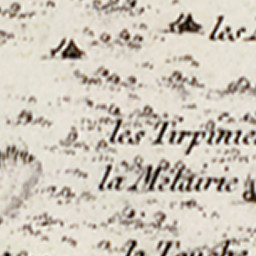 les
les Tirpinie
la Métairie
la Touche